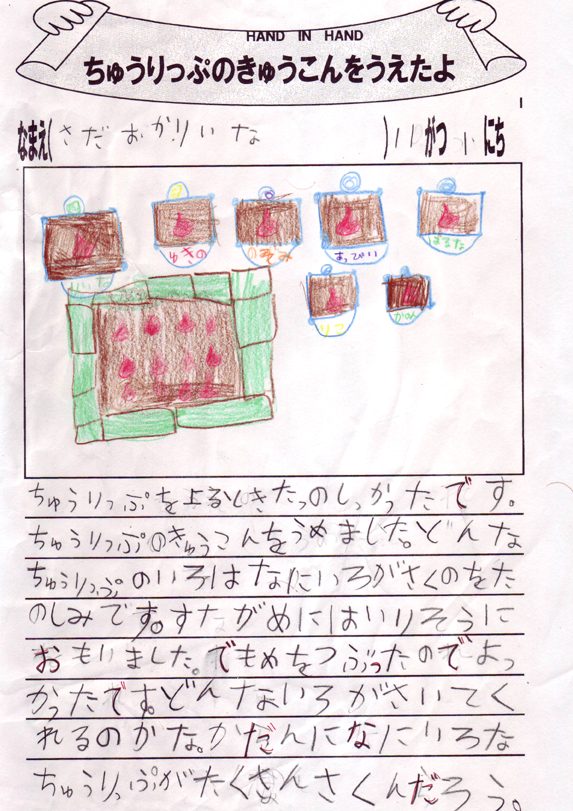 HAND IN HAND
ちゅうりっぷのきゅうこんをうえたよ
なまえ( さだ おかりいな )11がつ 11にち
ゆきの のぞみ はるた
りこ かのん
ちゅうりっぷを たっのしっかったです。
ちゅうりっぷのきゅうこんをうめました。どんな
ちゅうりっぷのいろはなにいろがさくのをた
のしみです。すながめにはいりそうに
おもいました。でもめをつぶったのでよっ
かったです。どんないろがさいてく
れるのかな。かだんになにいろな
ちゅうりっぷがたくさんさくんだろう。